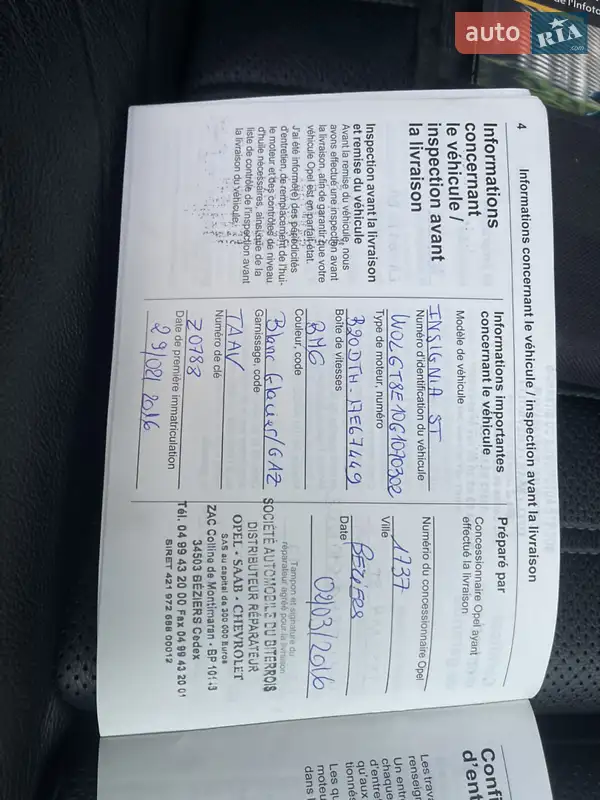 auto RIA.com
4 Informations concernant le véhicule / inspection avant la livraison
Informations
concernant
le véhicule /
inspection avant
la livraison
Inspection avant la livraison
et remise du véhicule
Avant la remise du véhicule, nous
avons effectué une inspection avant
la livraison, afin de garantir que votre
véhicule Opel est en parfait état.
J'ai été informé(e) des périodicités
d'entretien, de remplacement de l'hui-
le moteur et des contrôles de niveau
d'huile nécessaires, ainsi que de la
liste de contrôle de l'inspection avant
la livraison du véhicule.
Informations importantes
concernant le véhicule
Modèle de véhicule
INSIGNIA ST
Numéro d'identification du véhicule
W0LGT8E10G1070302
Type de moteur, numéro
B20DTH. 17E67449
Boîte de vitesses
BM6
Couleur, code
Blanc Glacier/GAZ
Garnissage, code
TAAV
Numéro de clé
Z0783
Date de première immatriculation
29/02/2016
Préparé par
Concessionnaire Opel ayant
effectué la livraison
Numéro du concessionnaire Opel
1737
Ville
BEZIERS
Date
02/03/2016
Tampon et signature du
réparateur agréé pour la livraison
SOCIÉTÉ AUTOMOBILE DU BITERROIS
DISTRIBUTEUR RÉPARATEUR
OPEL - SAAB - CHEVROLET
SAS au capital de 300 000 Euros
ZAC Colline de Montimaran - BP 10143
34503 BÉZIERS Cedex
Tél. 04 99 43 20 00 Fax 04 99 43 20 01
SIRET 421 972 688 00012
Les trav
renseign
Un entr
chaque
d'entre
qu'aux
tionnés
Les qu
moteu
dans l